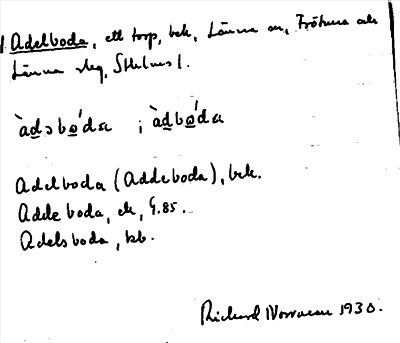 1. Adelboda, ett torp, bek, Länna sn, Frötuna och
Länna slg, Sthlms l.
`adəbo´da ; `adbo´da
Adelboda (Addeboda), bek.
Adde boda, ek, G.85.
Adelsboda, kb.
Richard Norrman 1930.